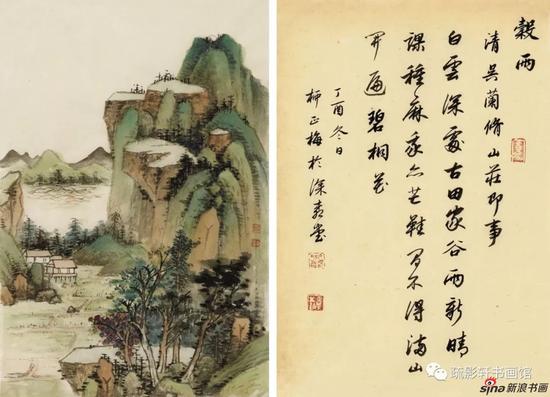 穀雨
清吳蘭脩山莊即事
白雲深處古田家谷雨新晴
課種麻我亦芒鞋閒不得滿山
開遍碧桐花
丁酉冬日
柳正梅於深堂
疏影轩书画馆
sina新浪书画